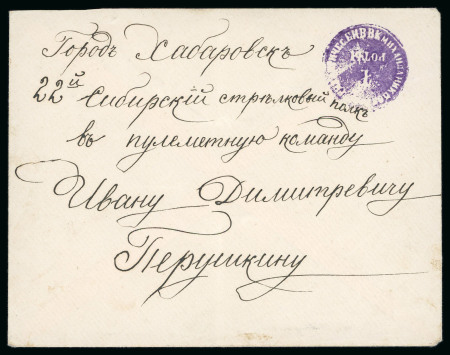 Городъ Хабаровскъ
22й Сибирскій стрѣлковый полкъ
въ пулеметную команду
Ивану Димитревичу
Перушкину